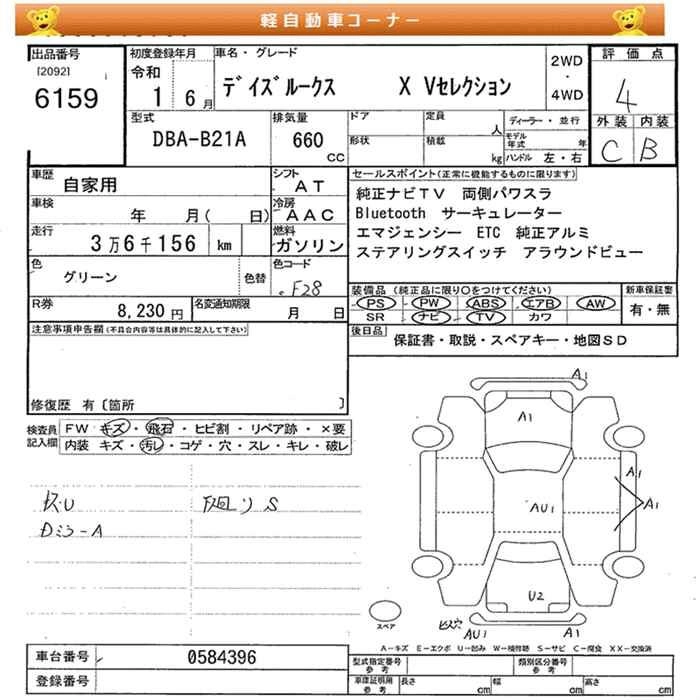 軽自動車コーナー
出品番号
[2092]
6159
初度登録年月
令和
1 6月
車名・グレード
デイズルークス X Vセレクション
2WD
・
4WD
評価点
4
外装 内装
C B
型式
DBA-B21A
排気量
660
CC
ドア
形状
定員
人
積載
kg
ディーラー・並行
モデル年式 年
ハンドル 左・右
車歴
自家用
シフト
AT
車検
年 月( 日)
冷房
AAC
走行
3万6千156 km
燃料
ガソリン
色
グリーン
色替
色コード
F28
R券
8,230円
名変通知期限
月 日
セールスポイント(正常に機能するものに限ります)
純正ナビTV 両側パワスラ
Bluetooth サーキュレーター
エマジェンシー ETC 純正アルミ
ステアリングスイッチ アラウンドビュー
装備品 (純正品に限り○をつけてください)
PS PW ABS エアB AW
SR ナビ TV カワ
新車保証書
有・無
後日品
保証書・取説・スペアキー・地図SD
注意事項申告欄(不具合内容等は具体的に記入して下さい)
修復歴 有〔箇所 〕
検査員記入欄
FW キズ・飛石・ヒビ割・リペア跡・×要
内装 キズ・汚レ・コゲ・穴・スレ・キレ・破レ
廻りS
A1
A1
A1
A1
AU1
U2
AU1
A1
スペア
A-キズ E-エクボ U-凹み W-補修跡 S-サビ C-腐食 XX-交換済
車台番号
0584396
登録番号
型式指定番号
参考
類別区分番号
参考
車庫証明用
参考
長さ cm
幅 cm
高さ cm